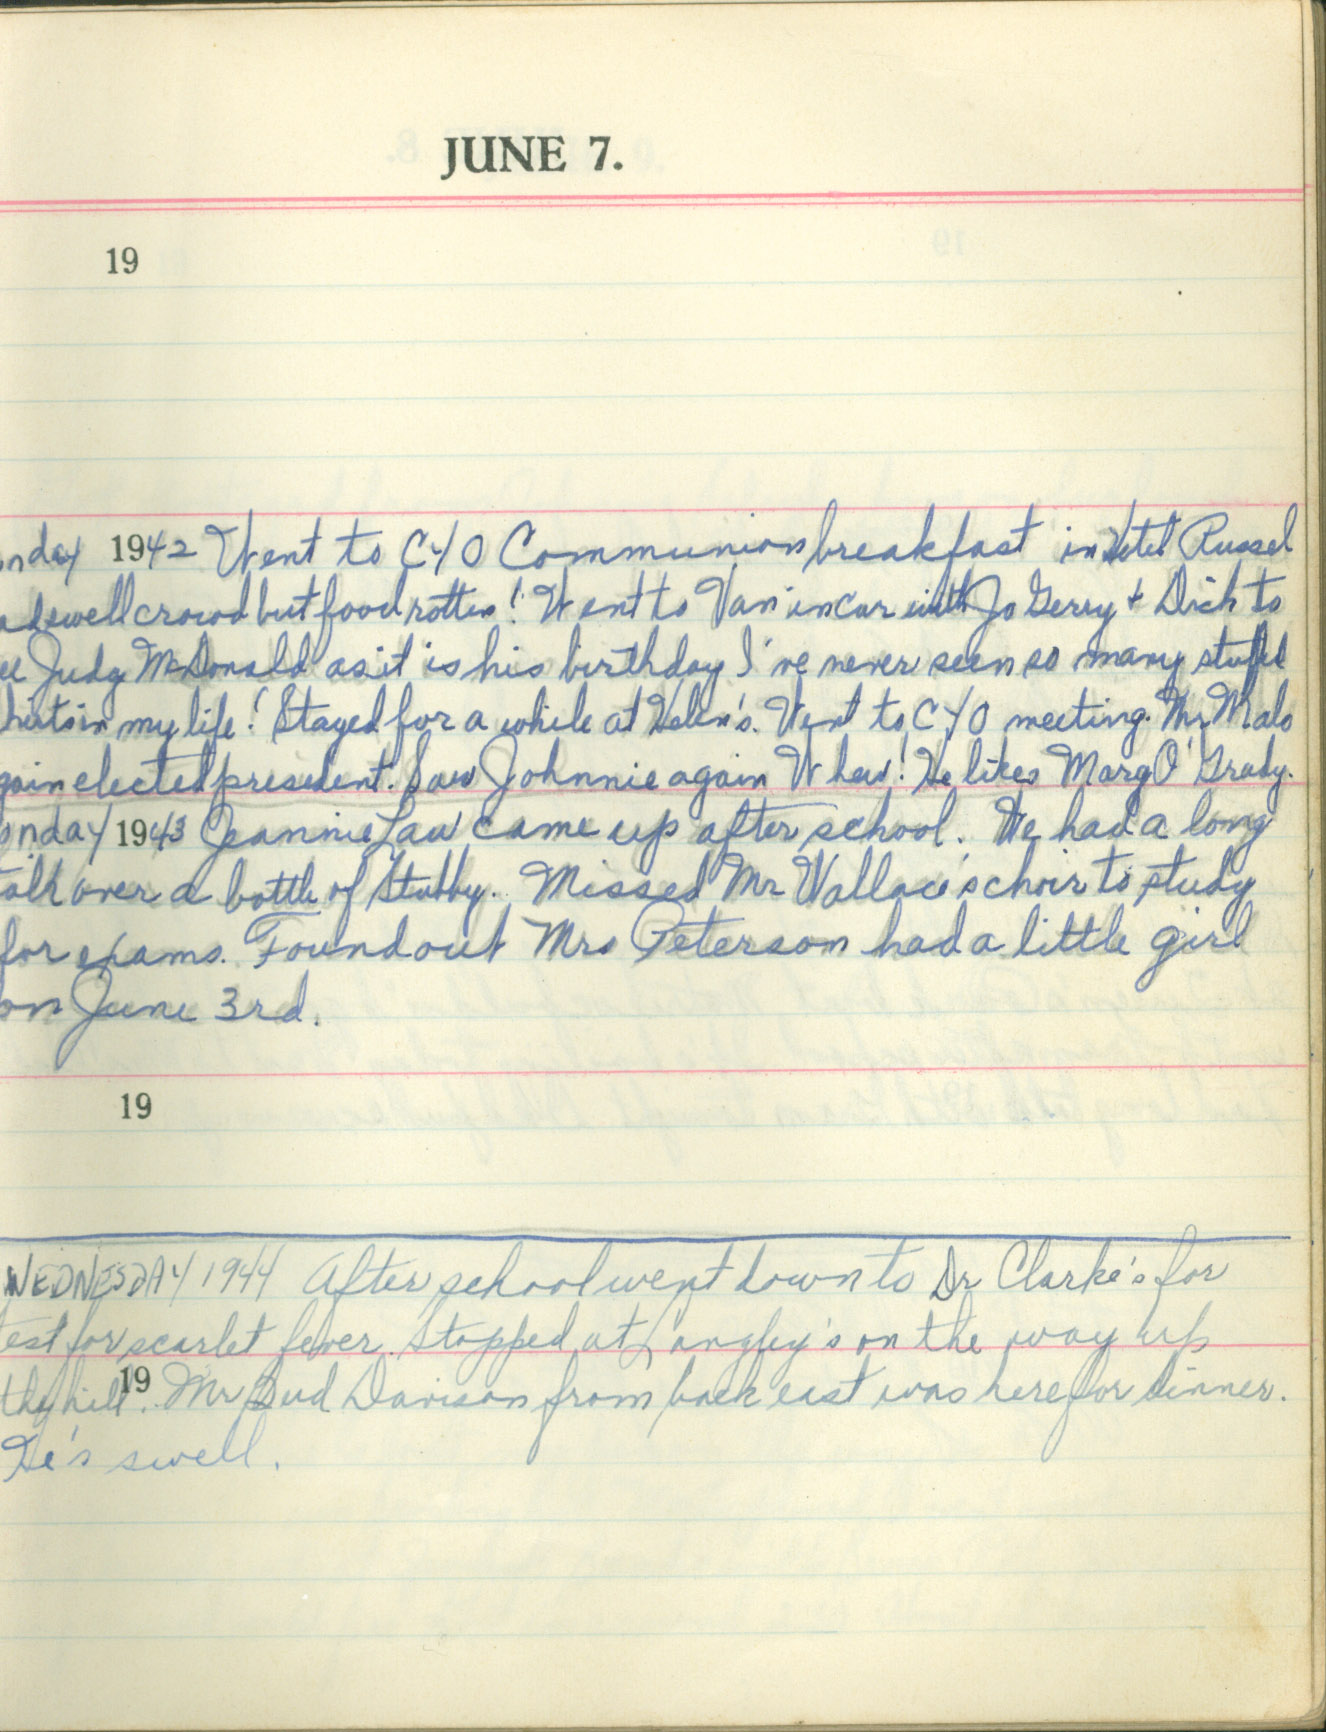 JUNE 7.
19
nday 1942 Went to CYO Communion breakfast in Hotel Russel
swell crowd but food rotten! Went to Van in car with Jo Gerry + Dick to
Judg McDonald as it is his birthday I've never seen so many stuffed
shirts in my life! Stayed for a while at Helen's. Went to CYO meeting. Mr Malo
gain elected president. Saw Johnnie again Whew! He likes Marg O'Grady.
onday 1943 Jeannie Law came up after school. We had a long
talk over a bottle of Stubby. Missed Mr Wallace's choir to study
for exams. Found out Mrs Peterson had a little girl
on June 3rd.
19
WEDNESDAY 1944 After school went down to Dr Clarke's for
test for scarlet fever. Stopped at Langley's on the way up
the hill. 19 Mr Bud Davison from back east was here for dinner.
He's swell.